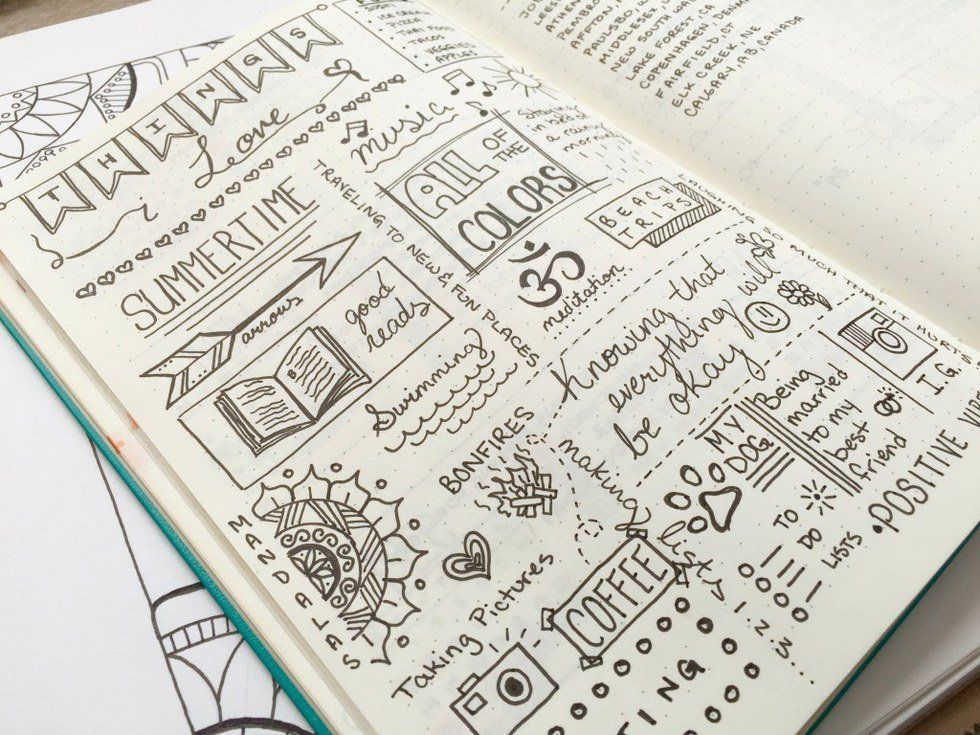 THINGS
i Love
SUMMERTIME
arrows
good
reads
MANDALAS
• ICE CREAM
• PIZZA
• THAI FOOD
• TACOS
• VEGGIES
• APPLES
music
TRAVELING TO NEW & FUN PLACES
ALL OF
THE
COLORS
Staying
in bed on
a rainy
morning
BEACH
TRIPS
ૐ
meditation
Swimming
BONFIRES
Knowing that
everything will
be okay
LAUGHING SO HARD THAT IT HURTS
I.G.
MY
DOG
Being
married
to my
best
friend
making
lists
TO
DO
LISTS
1.
2.
3.
• POSITIVE
Taking Pictures
COFFEE
TING
AFFTON,
PAULSBO, W
MIDDLESET,
NEW SOUTH WA
LAKE FOREST, CA
COPENHAGEN, DENMA
FAIRFIELD, CT
ELK CREEK, NE
CALGARY, AB, CANADA